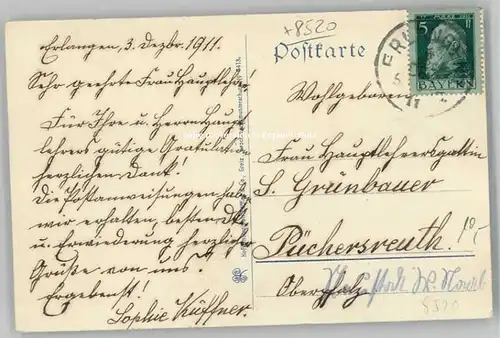 +8520
Erlangen, 3. Dezbr. 1911.
Sehr geehrte Frau Hauptlehrer!
Für Ihre u. Herrn Haupt
lehrers gütige Gratulation
herzlichen Dank!
Die Postanweisungen haben
wir erhalten, besten Dk.
u. Erwiederung herzlicher
Grüße von uns.
Ergebenst!
Sophie Küffner.
Postkarte
5
BAYERN
Wohlgeboren
Frau Hauptlehrersgattin
S. Grünbauer
Püchersreuth!
10,-
Oberpfalz
8520